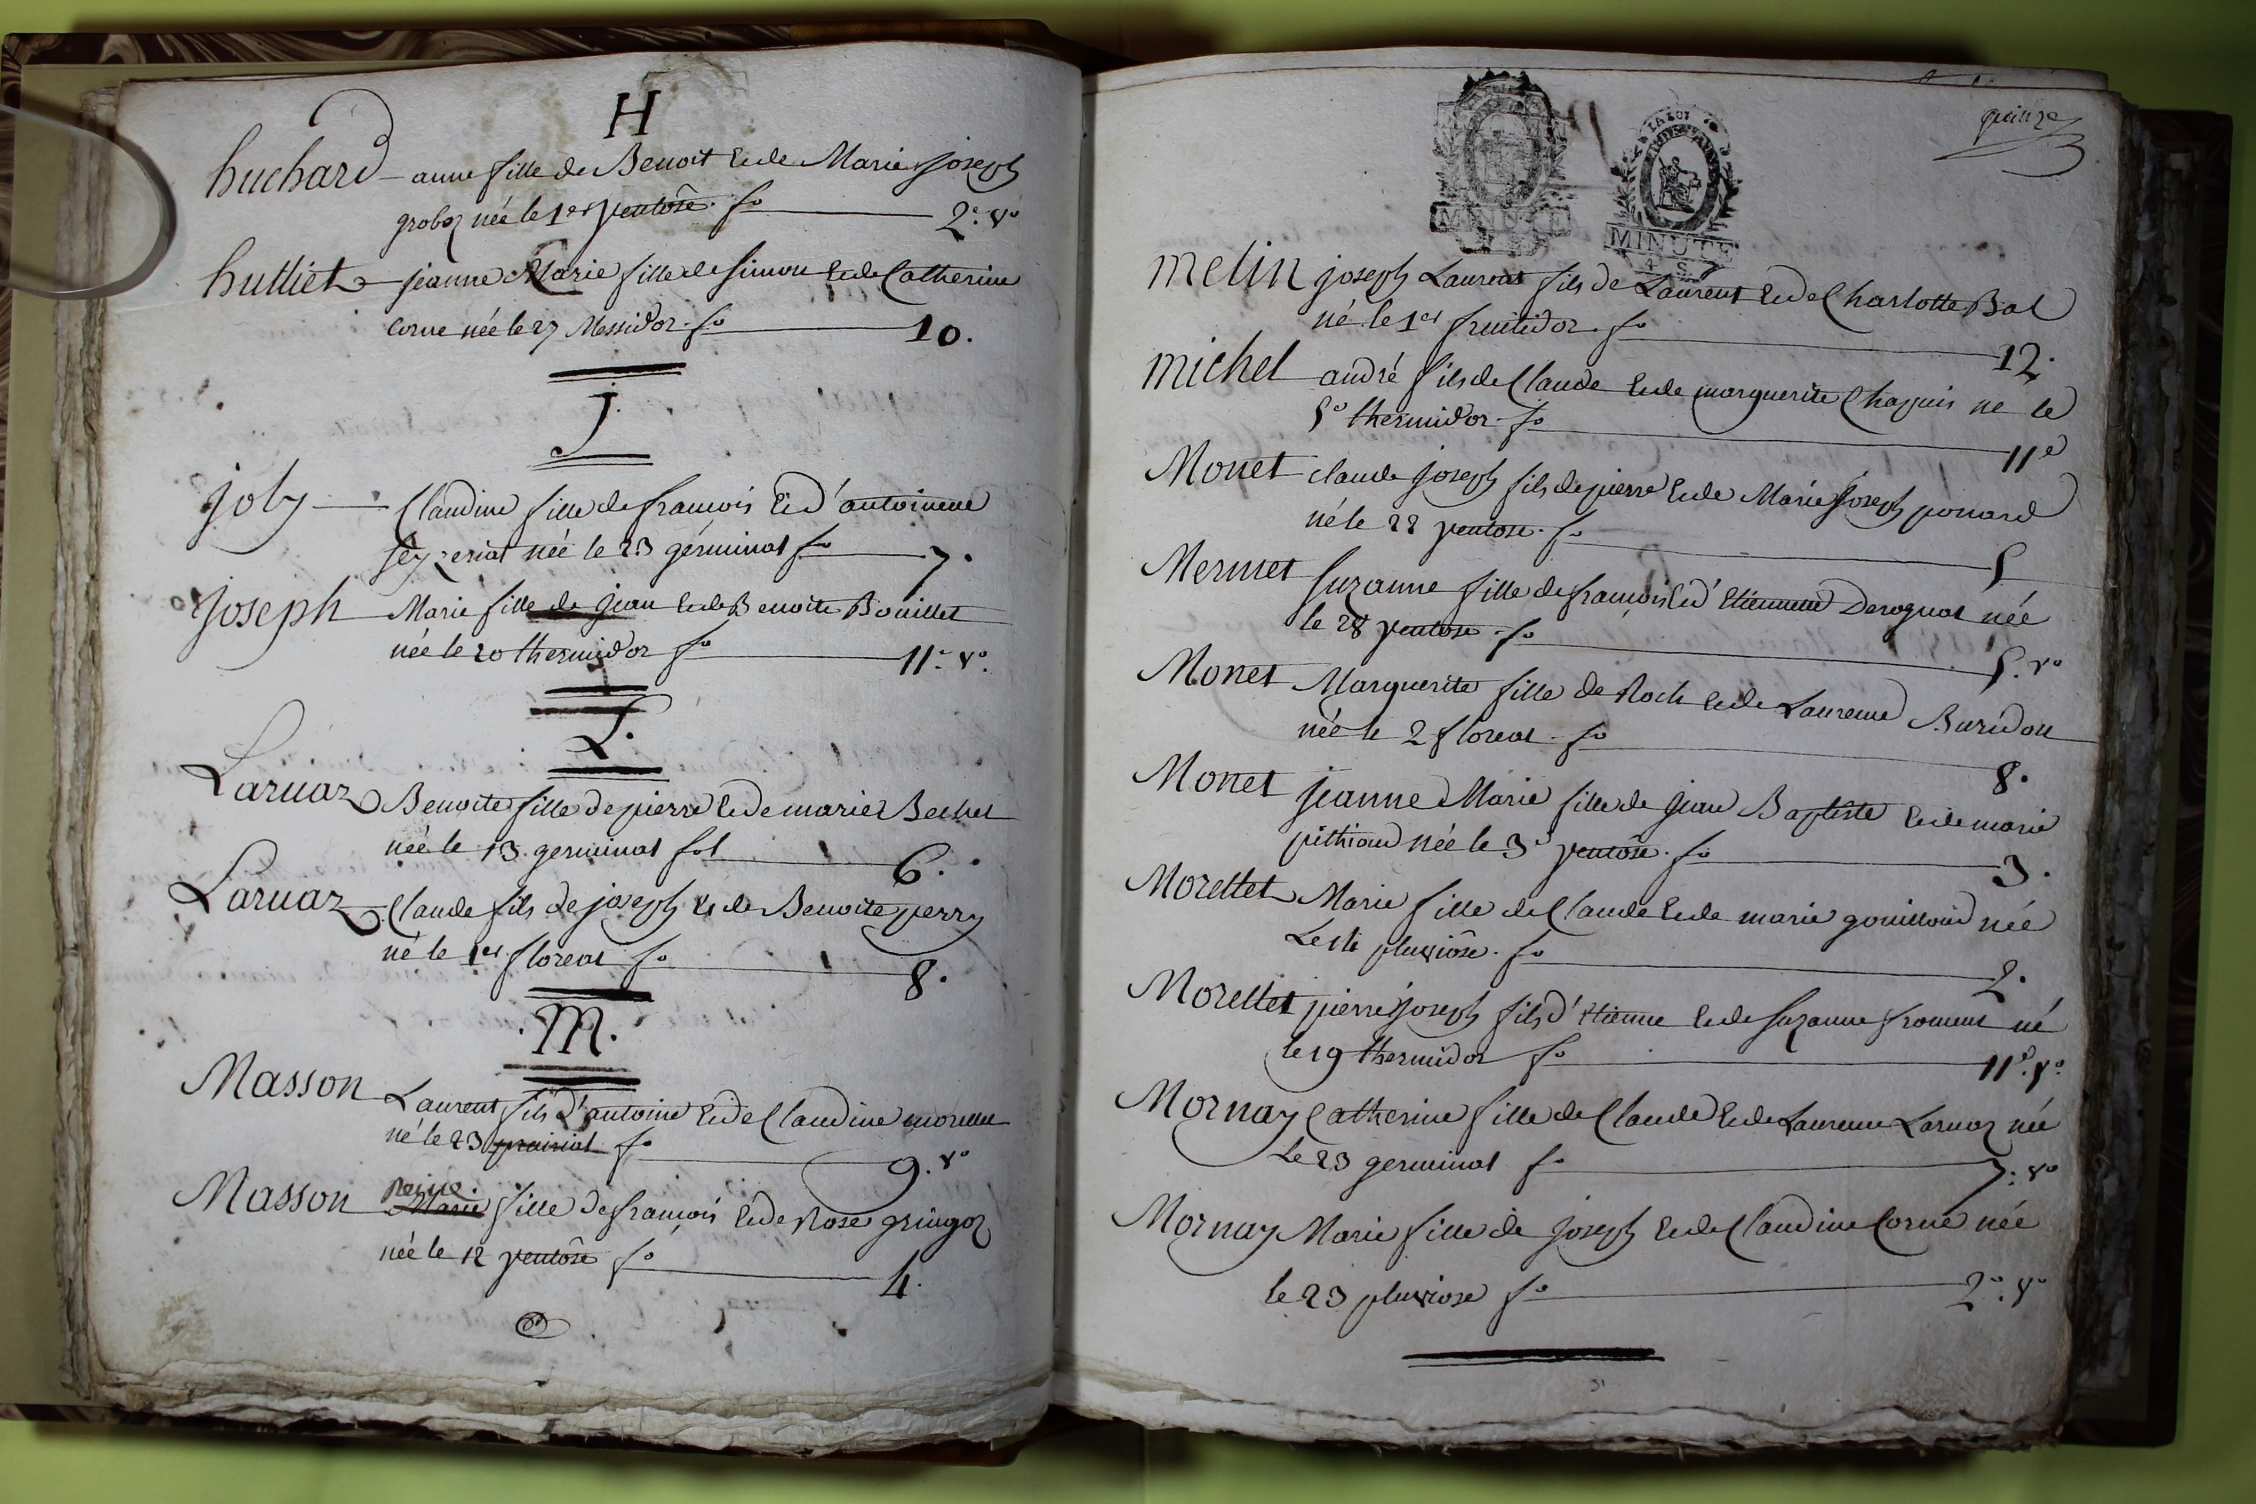 H
huchard anne fille de Benoit & de Marie Joseph
groboz née le 1er ventôse. fo 2e. vo
hulliet jeanne Marie fille de Simon & de Catherine
Corne née le 27 Messidor. fo 10.
J.
joly Claudine fille de françois & d'antoinette
née le 23 gérminal fo 7.
Joseph Marie fille de jean & de Benoite Bouillet
née le 20 thermidor fo 11e. vo.
L.
Laruaz Benoite fille de pierre & de marie
née le 13 germinal fol 6.
Laruaz Claude fils de joseph & de Benoite perry
né le 1er floreal fo 8.
M.
Masson Laurent fils d'antoine & de Claudine morellet
né le 23 prairial fo 9. vo
Masson Reine. Marie fille de françois & de Rose gringoz
née le 12 ventôse fo 4.
quinze
LA LOI
MINUTE
MINUTE
melin joseph Laurent fils de Laurent & de Charlotte Bal
né le 1er fructidor. fo 12.
michel andré fils de Claude & de marguerite Chapuis né le
5e thermidor. fo 11e
Monet claude joseph fils de pierre & de Marie Joseph ponard
né le 22 ventose. fo 5
Mermet Suzanne fille de françois & d'Etiennette Derognat née
le 28 ventose. fo 5. vo
Monet Marguerite fille de Roch & de Laurence Buridon
née le 2 floreal. fo 8.
Monet jeanne Marie fille de jean Baptiste & de marie
pithioud née le 3e ventôse. fo 3.
Morellet Marie fille de Claude & de marie gouilloud née
Le pluviôse. fo 2.
Morellet pierre joseph fils d'Etienne & de Suzanne froment né
le 19 thermidor fo 11e. vo.
Mornay Catherine fille de Claude & de Laurence Laruaz née
Le 23 germinal fo 7: vo
Mornay Marie fille de Joseph & de Claudine Corne née
le 23 pluviose fo 2e. vo